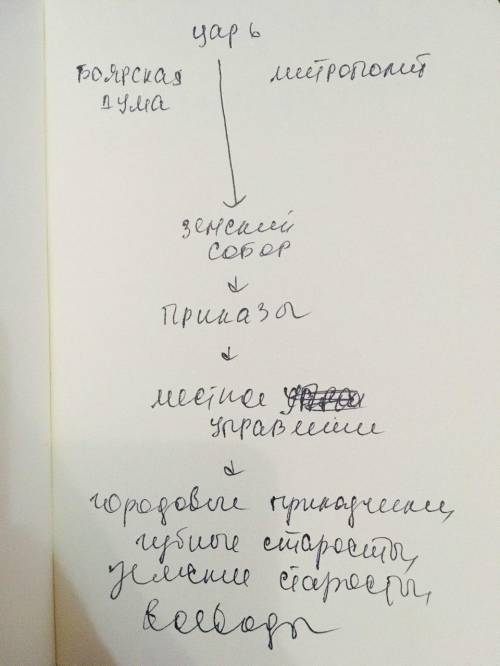 царь
Боярская митрополит
дума
земский
собор
приказы
местное
управление
городовые приказчики,
губные старосты,
земские старосты,
воеводы